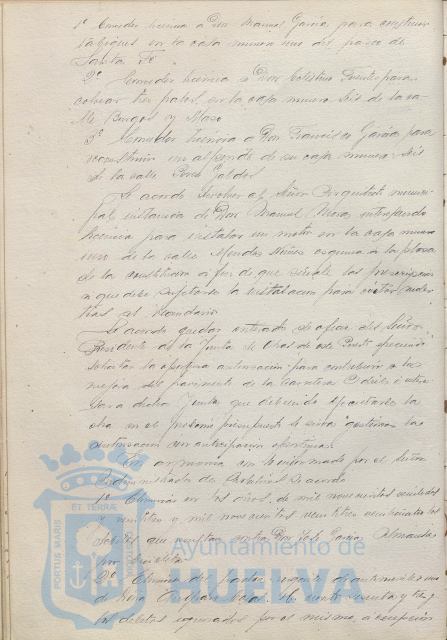 1º Conceder licencia a Don Manuel García para construir
tabiques en la casa numero uno del paseo de
Santa Fé
2º Conceder licencia a Don Celestino Puente para
colocar tres palos en la casa numero seis de la ca-
lle Burgos y Mazo
3º Conceder licencia a Don Francisco García para
reconstruir un alpende de su casa numero seis
de la calle Perez Galdós
Se acordó devolver al Señor Arquitecto munici-
pal instancia de Don Manuel Mora interesando
licencia para instalar un motor en la casa numero
uno de la calle Mendez Nuñez esquina a la plaza
de la Constitucion a fin de que señale las prescripciones
a que debe sujetarse la instalacion para evitar moles-
tias al vecindario
Se acordó quedar enterado de oficio del Señor
Presidente de la Junta de Obras de este Puerto ofreciendo
solicitar la oportuna autorizacion para contribuir a la
mejora del pavimento de la Carretera
para dicha Junta que debiendo ejecutarse la
obra en el proximo presupuesto se sirva gestionar la
autorizacion con anticipacion oportuna
En armonia con lo informado por el Señor
Administrador de se acordó
1º Eliminar en los años de mil novecientos veintidos
y veintitres y mil novecientos veintitres veinticuatro los
debitos que resultan contra Don José Garcia Almansa
por
2º Eliminar del padron
de Don
los debitos a excepcion
PORTUS MARIS ET TERRAE
Ayuntamiento de
HUELVA